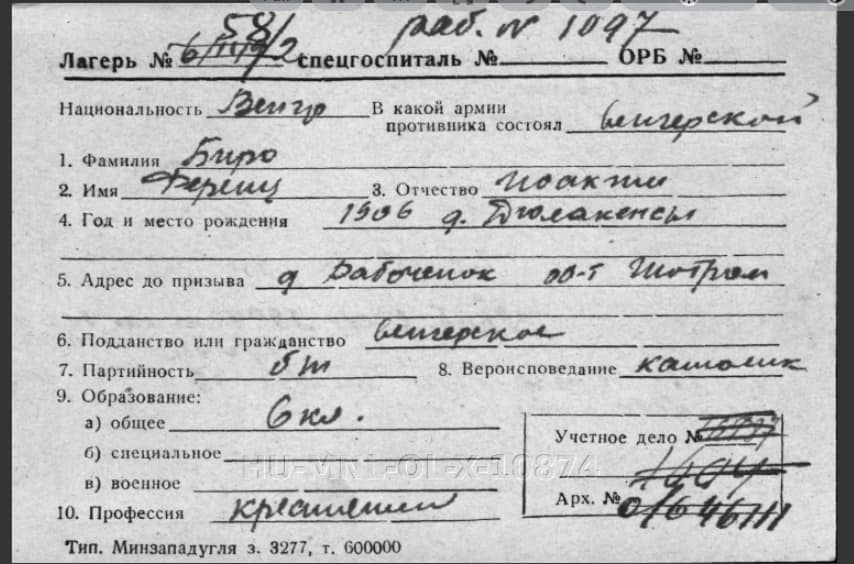 58/ раб. № 1097
Лагерь № /2 спецгоспиталь № ОРБ №
Национальность Венгр В какой армии
противника состоял венгерской
1. Фамилия Биро
2. Имя Ференц 3. Отчество Иоаким
4. Год и место рождения 1906 д.
5. Адрес до призыва д
6. Подданство или гражданство венгерское
7. Партийность б/п 8. Вероисповедание католик
9. Образование:
а) общее 6 кл.
б) специальное
HU-MNL-OL-X-10874
в) военное
10. Профессия крестьянин
Учетное дело №
Арх. №
Тип. Минзападугля з. 3277, т. 600000